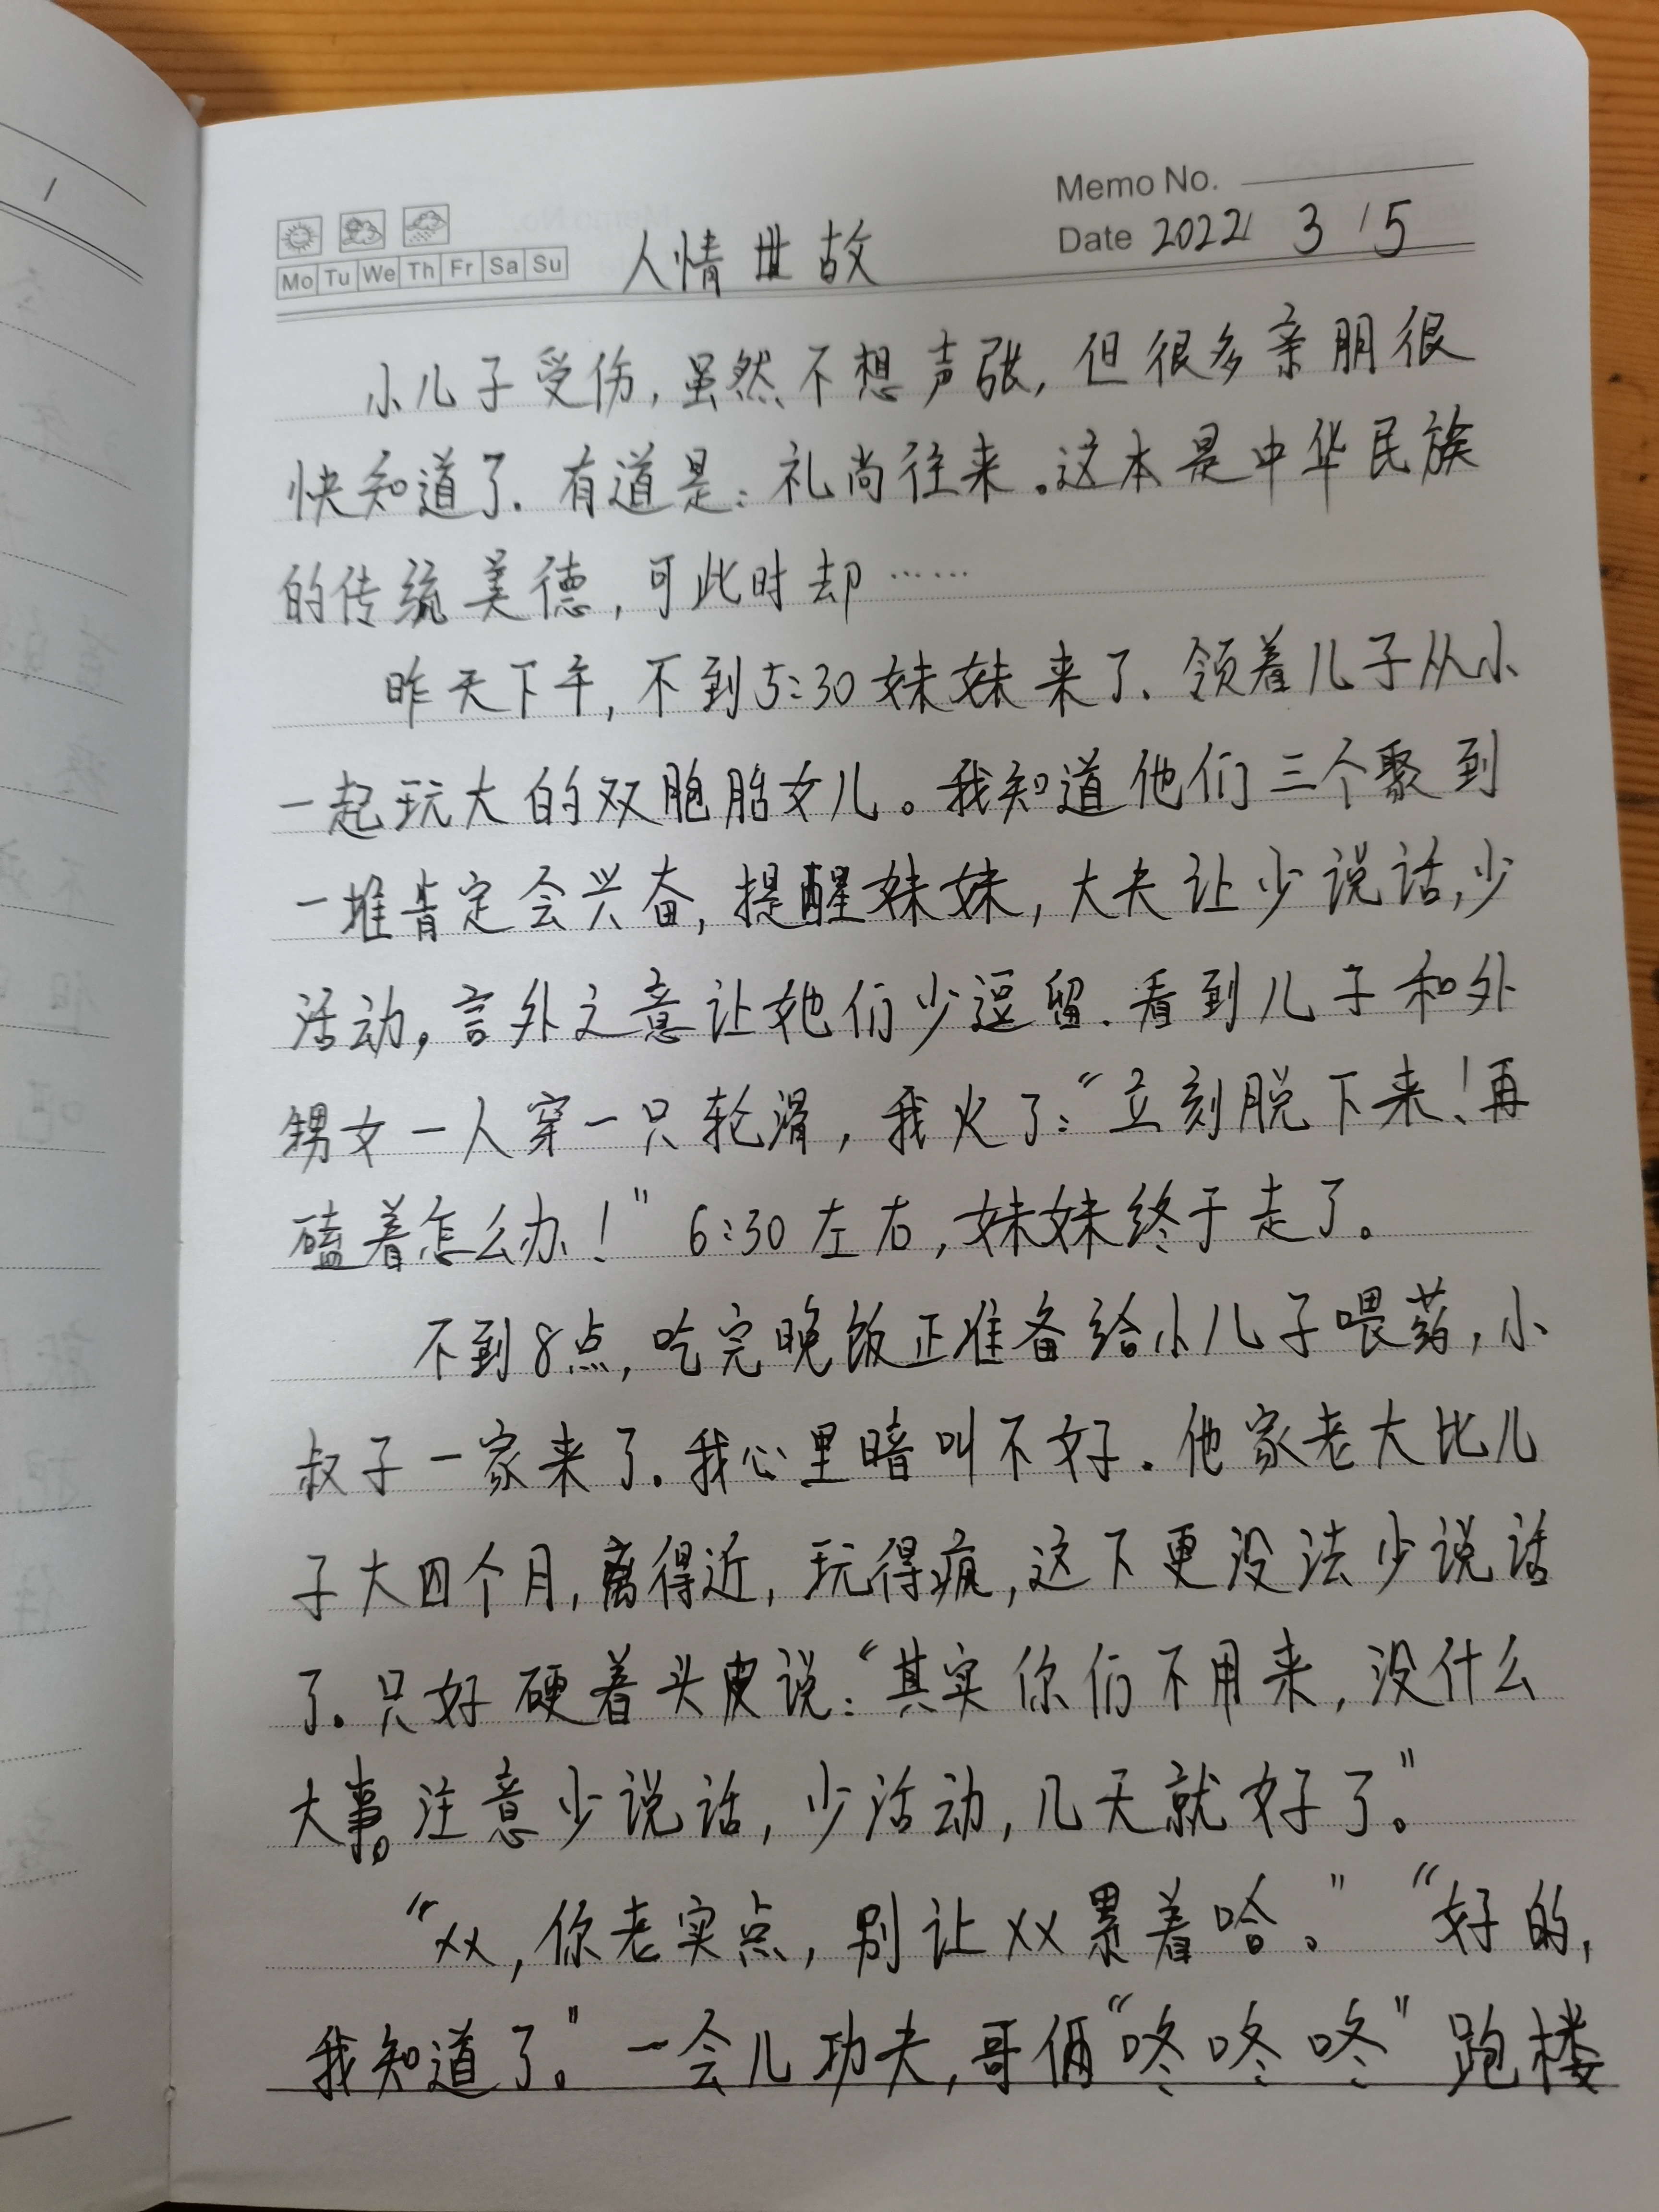 Memo No.
Mo Tu We Th Fr Sa Su 人情世故 Date 2022 3 15
小儿子受伤,虽然不想声张,但很多亲朋很
快知道了.有道是:礼尚往来.这本是中华民族
的传统美德,可此时却……
昨天下午,不到5:30妹妹来了.领着儿子从小
一起玩大的双胞胎女儿。我知道他们三个聚到
一堆肯定会兴奋,提醒妹妹,大夫让少说话,少
活动,言外之意让她们少逗留.看到儿子和外
甥女一人穿一只轮滑,我火了:“立刻脱下来!再
磕着怎么办!”6:30左右,妹妹终于走了。
不到8点,吃完晚饭正准备给小儿子喂药,小
叔子一家来了.我心里暗叫不好.他家老大比儿
子大四个月,离得近,玩得疯,这下更没法少说话
了.只好硬着头皮说:“其实你们不用来,没什么
大事。注意少说话,少活动,几天就好了。”
“xx,你老实点,别让xx累着哈。”“好的,
我知道了。”一会儿功夫,哥俩“咚咚咚”跑楼